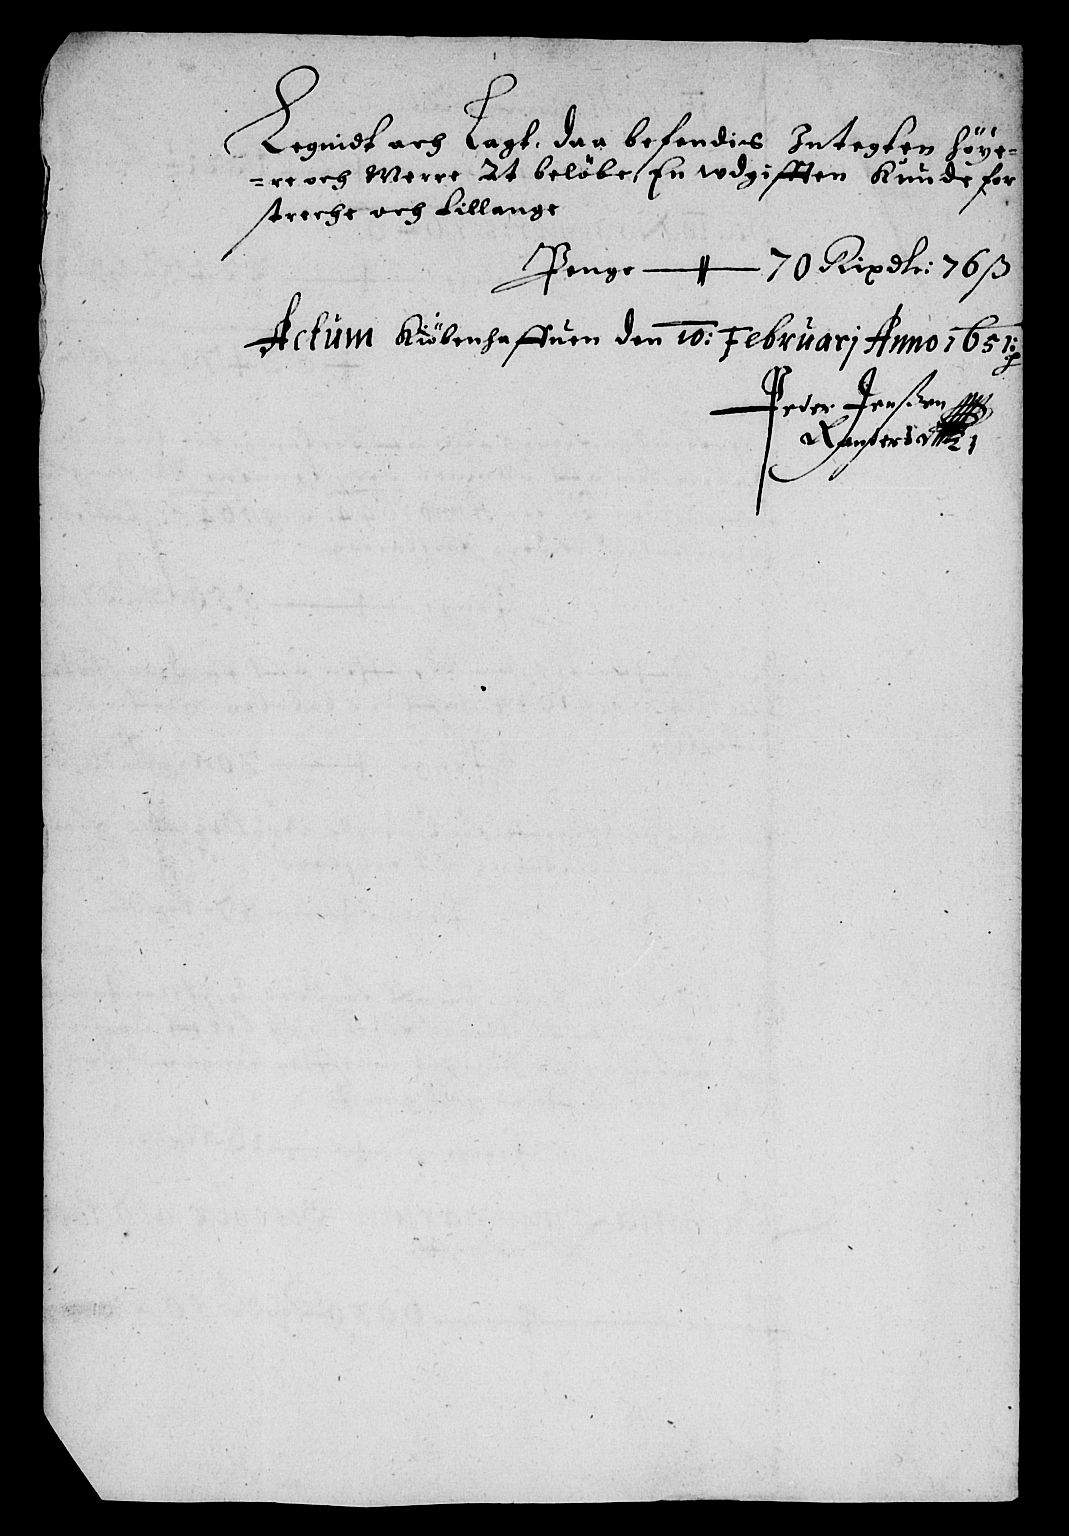 Legnidt och Lagt, daa befendies Integten höye=
=re och Merre At beløbe, En wdgifften Kunde for
streche och tillange
Penge — 70 Rixdlr: 76 ß
Actum Kiöbenhaffuen den 10: Februarj Anno 1651:
Peder Jenßen